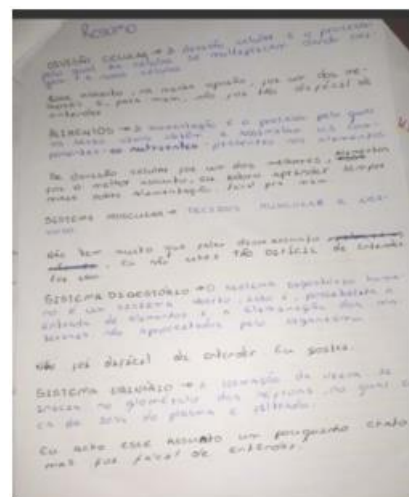 Resumo
DIVISÃO CELULAR → A divisão celular é o processo
pelo qual as células se multiplicam dando ori-
gem a novas células.
Esse assunto, na minha opinião, foi um dos me-
lhores e, para mim, não foi tão difícil de
entender.
ALIMENTOS → A alimentação é o processo pelo qual
os seres vivos obtêm e assimilam os com-
ponentes nutrientes presentes nos alimentos
Se divisão celular foi um dos melhores, alimentos
foi o melhor assunto, eu adoro aprender sempre
mais sobre alimentação, fácil pra mim
SISTEMA MUSCULAR → TECIDOS MUSCULAR
Não tem muito que falar desse assunto
eu não achei TÃO DIFÍCIL de entender
SISTEMA DIGESTÓRIO → O sistema digestório huma-
no é um sistema aberto, isto é, possibilita a
entrada de alimentos e a eliminação dos
não aproveitados pelo organismo
Não foi difícil de entender Eu gostei.
SISTEMA URINÁRIO → A formação da urina se
no glomérulo dos néfrons, no qual
ca de 20% do plasma é filtrado.
Eu acho esse ASSUNTO um pouquinho chato
mas foi fácil de entender.